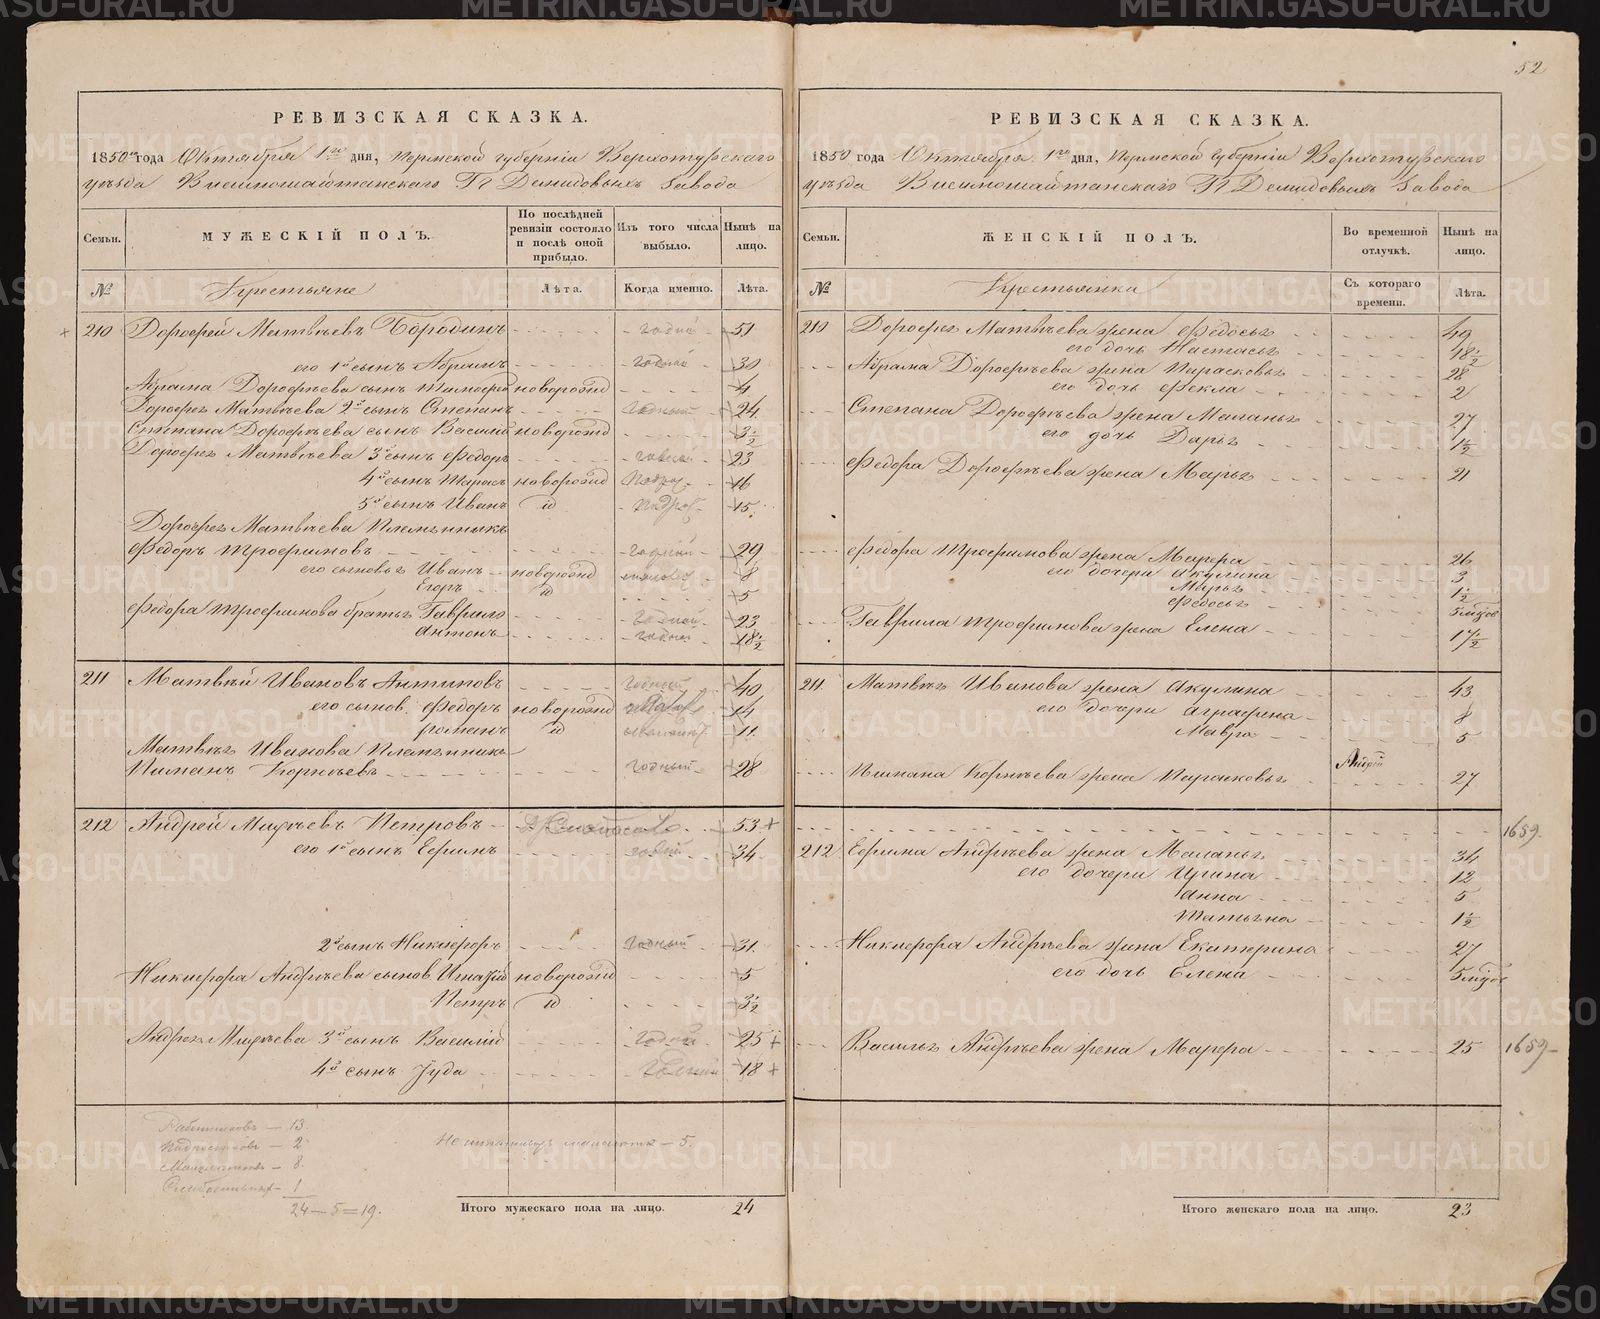 52
РЕВИЗСКАЯ СКАЗКА.
1850го года Октября 1го дня, Пермской губерніи Верхотурскаго
уѣзда Висимошайтанскаго П Демидовыхъ Завода
Семьи.
МУЖЕСКІЙ ПОЛЪ.
По послѣдней ревизіи состояло и послѣ оной прибыло.
Изъ того числа выбыло.
Нынѣ на лицо.
№ Крестьяне Лѣта. Когда именно. Лѣта.
210 Дорофей Матвѣевъ Бородинъ годный 51
его 1й сынъ Абрамъ годный 30
Абрама Дорофѣева сынъ Тимофей новорожд 4
Дорофея Матвѣева 2й сынъ Степанъ годный 24
Степана Дорофѣева сынъ Василій новорожд 3½
Дорофея Матвѣева 3й сынъ Федоръ годный 23
4й сынъ Тарасъ новорожд 16
5й сынъ Иванъ id 15
Дорофея Матвѣева Племянникъ
Федоръ Трофимовъ годный 29
его сыновья Иванъ новорожд 8
Егоръ id 5
Федора Трофимова братья Гаврила годный 23
Антонъ годный 18½
211 Матвѣй Ивановъ Антиповъ годный 40
его сынов Федоръ новорожд 14
Романъ id 11
Матвѣя Иванова Племянникъ
Пиманъ Корнѣевъ годный 28
212 Андрей Михѣевъ Петровъ 53 +
его 1й сынъ Ефимъ годный 34
2й сынъ Никифоръ годный 31
Никифора Андрѣева сынов Игнатій новорожд 5
Петръ id 3½
Андрея Михѣева 3й сынъ Василій годный 25 +
4й сынъ Іуда годный 18 +
Работниковъ — 13
Подростковъ — 2
Малолетковъ — 8
1
24 — 5 = 19.
— 5.
Итого мужескаго пола на лицо. 24
РЕВИЗСКАЯ СКАЗКА.
1850 года Октября 1го дня, Пермской Губерніи Верхотурскаго
уѣзда Висимошайтанскаго П Демидовыхъ Завода
Семьи.
ЖЕНСКІЙ ПОЛЪ.
Во временной отлучкѣ.
Нынѣ на лицо.
№ Крестьянки Съ котораго времени. Лѣта.
210 Дорофея Матвѣева жена Федосья 49
его дочь Настасья 18½
Абрама Дорофѣева жена Парасковья 28
его дочь Фекла 2
Степана Дорофѣева жена Маланья 27
его дочь Дарья 1½
Федора Дорофѣева жена Марья 21
Федора Трофимова жена Марфа 26
его дочери Акулина 3
Марья ½
Федосья 5 мѣсяц
Гаврила Трофимова жена Елена 17½
211 Матвѣя Иванова жена Акулина 43
его дочери Аграфена 8
Мавра 5
Пимана Корнѣева жена Парасковья 27
1659.
212 Ефима Андрѣева жена Маланья 34
его дочери Ирина 12
Анна 5
Татьяна 1½
Никифора Андрѣева жена Екатерина 27
его дочь Елена 5 мѣсяц
Василья Андрѣева жена Марфа 25 1659
Итого женскаго пола на лицо. 23
METRIKI.GASO-URAL.RU